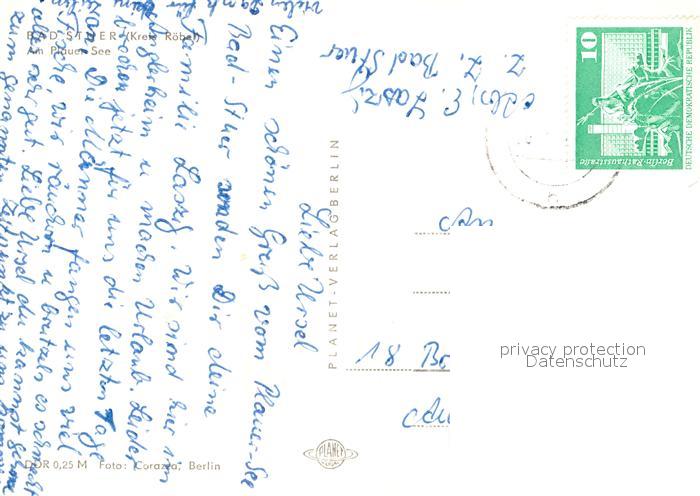 BAD STUER (Kreis Röbel)
Am Plauer See
Abs. E. Laszig
z. Z. Bad Stuer
Liebe Ursel
Einen schönen Gruß vom Plauer-See
Bad-Stuer senden Dir deine
Familie Laszig. Wir sind hier im
u machen Urlaub. Leider
jetzt für uns die letzten Tage
an. Die Männer fangen uns viel
Fische, wir räuchern u braten es schmeckt
alles sehr gut. Liebe Ursel du kannst
zum
vielen Dank für
PLANET-VERLAG BERLIN
An
18 Br
DDR 0,25 M Foto: Corazza, Berlin
PLANET
10
Berlin-Rathausstraße
DEUTSCHE DEMOKRATISCHE REPUBLIK
privacy protection
Datenschutz